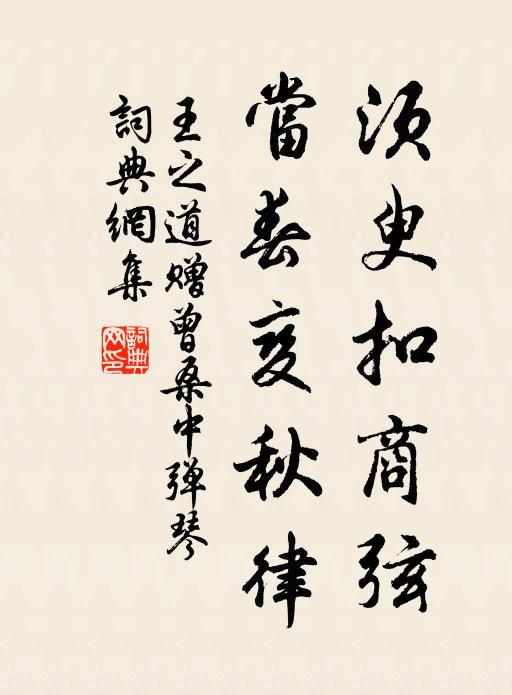 須臾扣商弦
當春變秋律
王之道贈曾桑中彈琴
詞典網集
詞典
网印